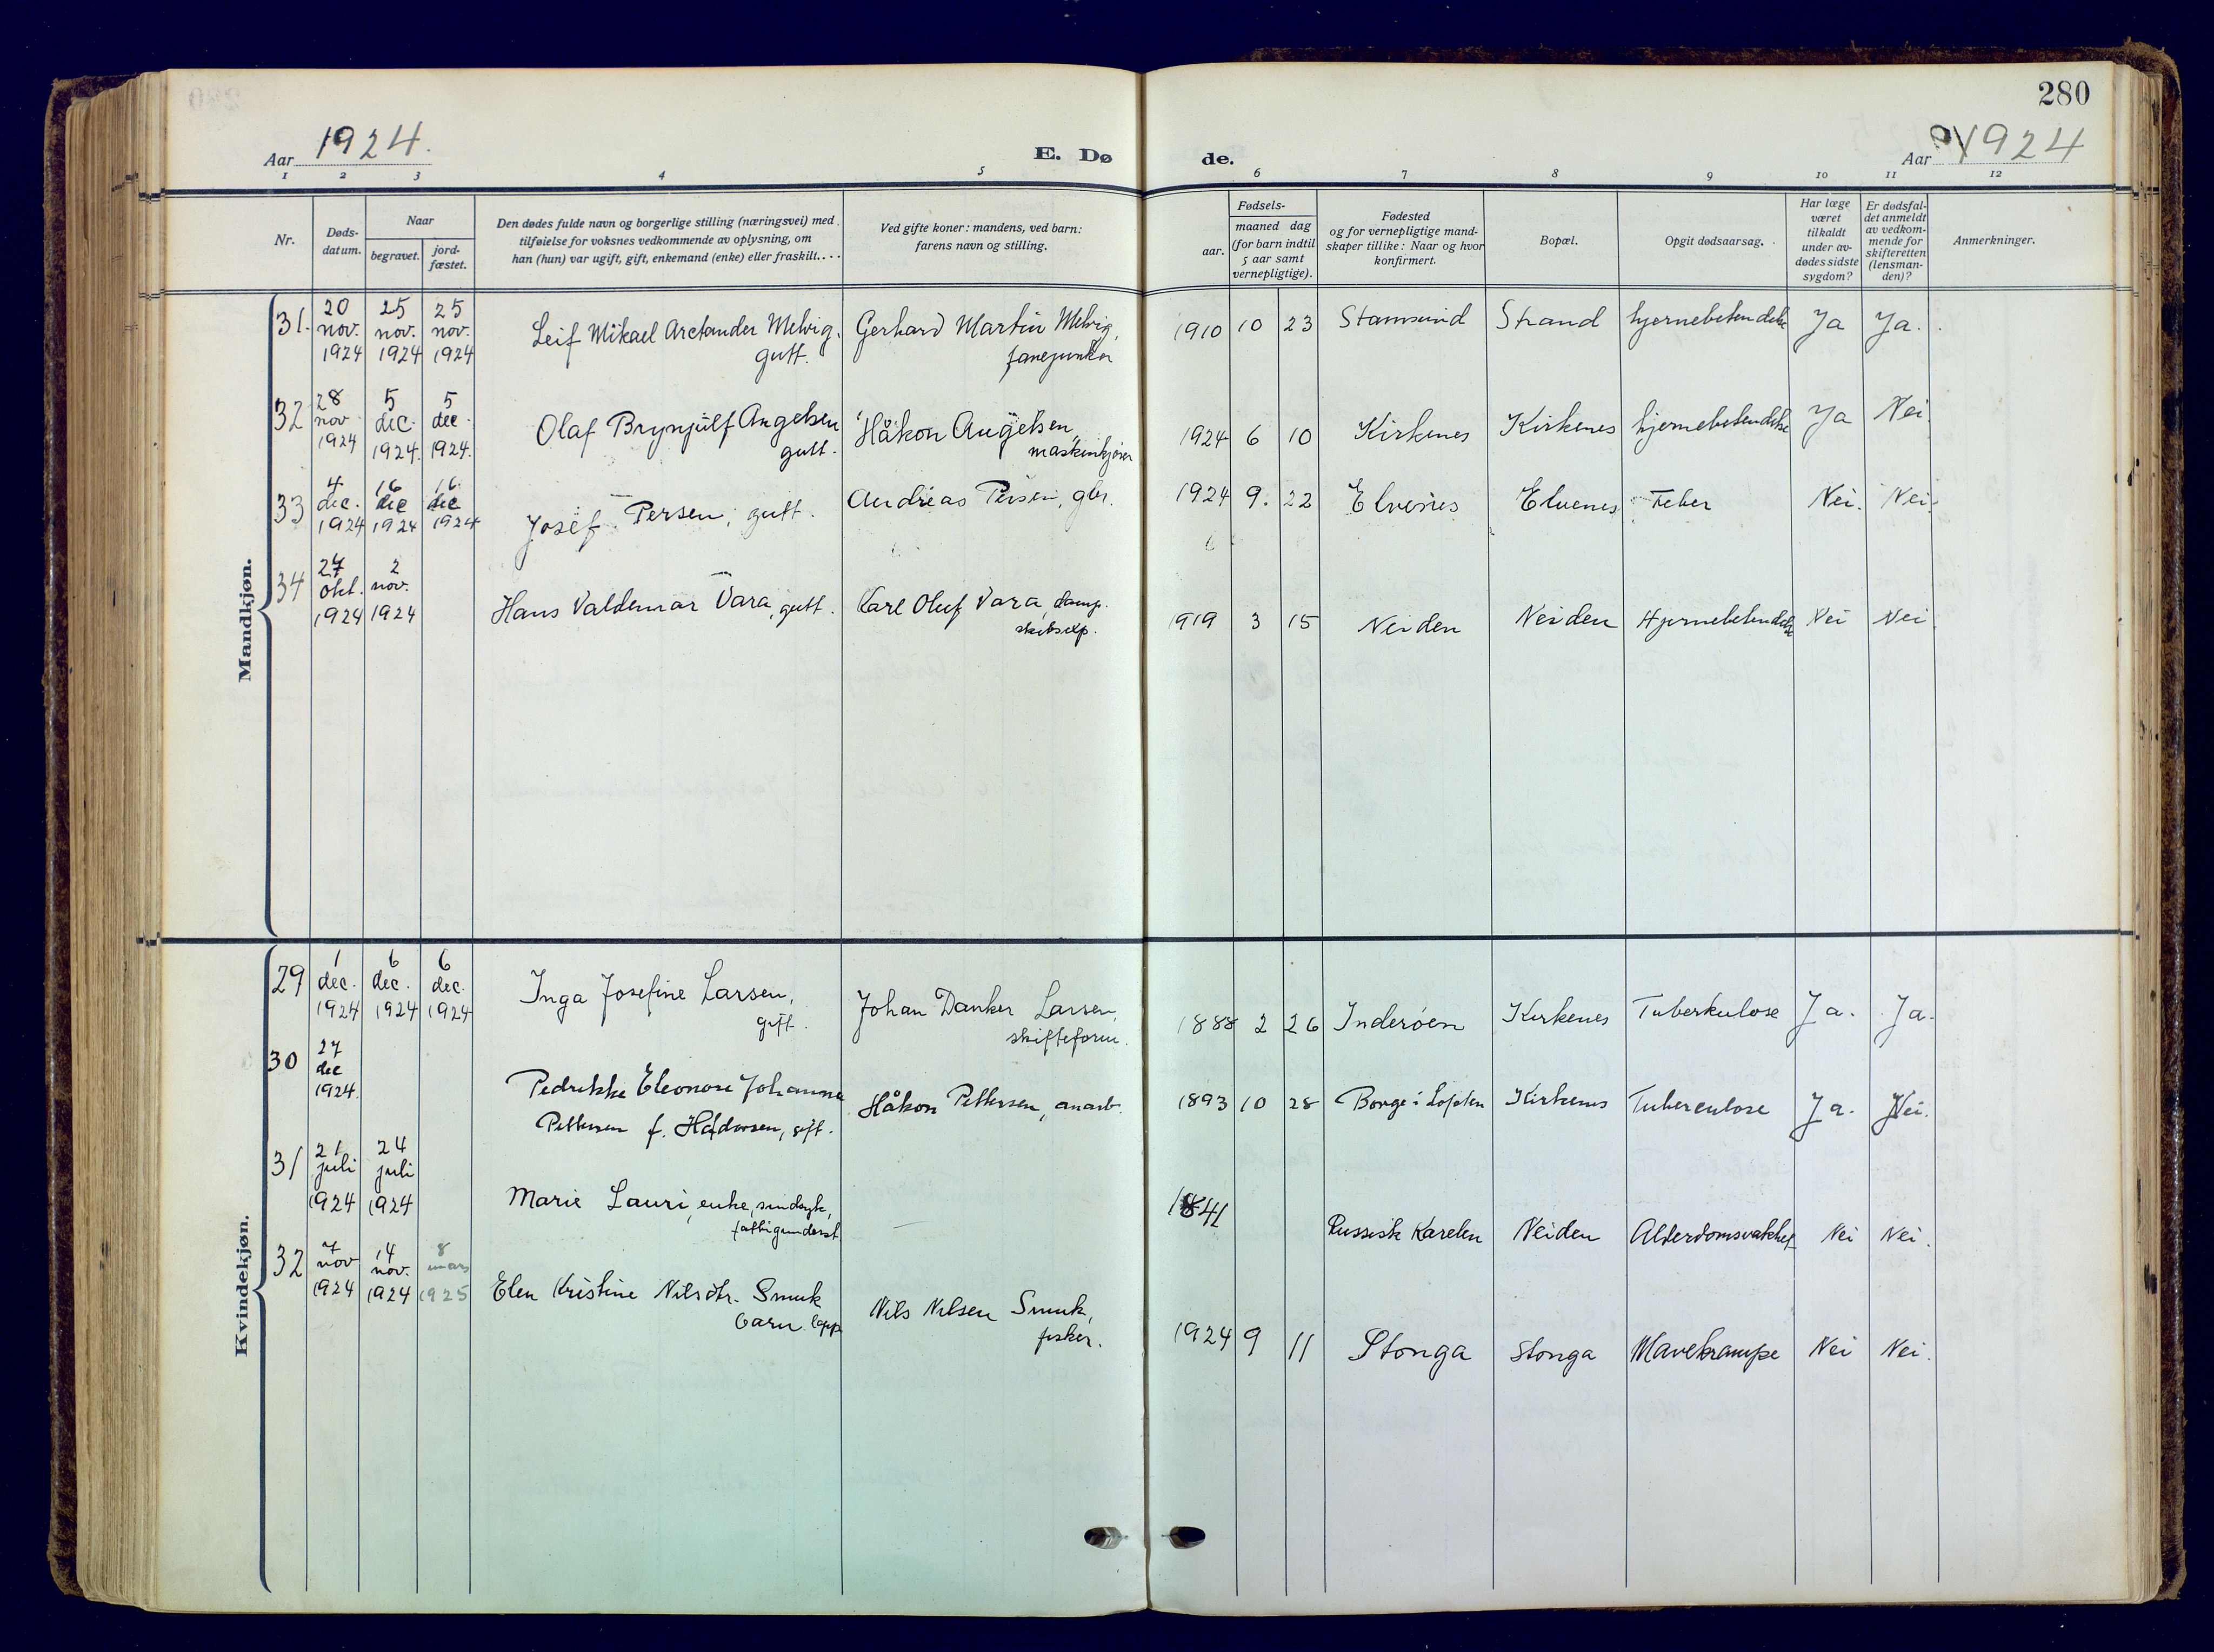 280
Aar 1924.
E. Dø
de.
Aar 1924
1 2 3 4 5 6 7 8 9 10 11 12
Nr.
Døds-
datum.
Naar
begravet.
jord-
fæstet.
Den dødes fulde navn og borgerlige stilling (næringsvei) med
tilføielse for voksnes vedkommende av oplysning, om
han (hun) var ugift, gift, enkemand (enke) eller fraskilt....
Ved gifte koner: mandens, ved barn:
farens navn og stilling.
Fødsels-
aar.
maaned dag
(for barn indtil
5 aar samt
vernepligtige).
Fødested
og for vernepligtige mand-
skaper tillike: Naar og hvor
konfirmert.
Bopæl.
Opgit dødsaarsag.
Har læge
været
tilkaldt
under av-
dødes sidste
sygdom?
Er dødsfal-
det anmeldt
av vedkom-
mende for
skifteretten
(lensman-
den)?
Anmerkninger.
Mandkjøn.
31.
20 nov. 1924
25 nov. 1924
25 nov. 1924
Leif Mikael Arctander Melvig.
gutt.
Gerhard Martin Melvig,
fanejunker
1910 10 23 Stamsund Strand hjernebetendelse Ja Ja.
32
28 nov 1924
5 dec. 1924.
5 dec. 1924.
Olaf Brynjulf Angelsen
gutt.
Håkon Angelsen,
maskinkjører
1924 6 10 Kirkenes Kirkenes hjernebetendelse Ja Nei
33
4 dec. 1924
16 dec 1924
16 dec 1924
Josef Persen, gutt.
Andreas Persen, gbr.
1924 9. 22 Elvenes Elvenes Feber Nei. Nei.
34
27 okt. 1924
2 nov. 1924
Hans Valdemar Vara, gutt.
Karl Oluf Vara, damp.
skibsexp.
1919 3 15 Neiden Neiden Hjernebetendelse Nei Nei
Kvindekjøn.
29
1 dec. 1924
6 dec. 1924
6 dec. 1924
Inga Josefine Larsen,
gift.
Johan Danker Larsen,
skifteform.
1888 2 26 Inderøen Kirkenes Tuberkulose Ja. Ja.
30
27 dec 1924
Pedrikke Eleonore Johanne
Pettersen f. Haldorsen, gift.
Håkon Pettersen, anarb.
1893 10 28 Borge i Lofoten Kirkenes Tuberculose Ja. Nei.
31
21 juli 1924
24 juli 1924
Marie Lauri, enke, sindsyk,
fattigunderst.
—
1841 Russisk Karelen Neiden Alderdomsvakhet Nei Nei.
32
7 nov 1924
14 nov. 1924
8 mars 1925
Elen Kristine Nilsdtr. Smuk
barn. lapp
Nils Nilsen Smuk,
fisker.
1924 9 11 Stonga Stonga Mavekrampe Nei Nei.